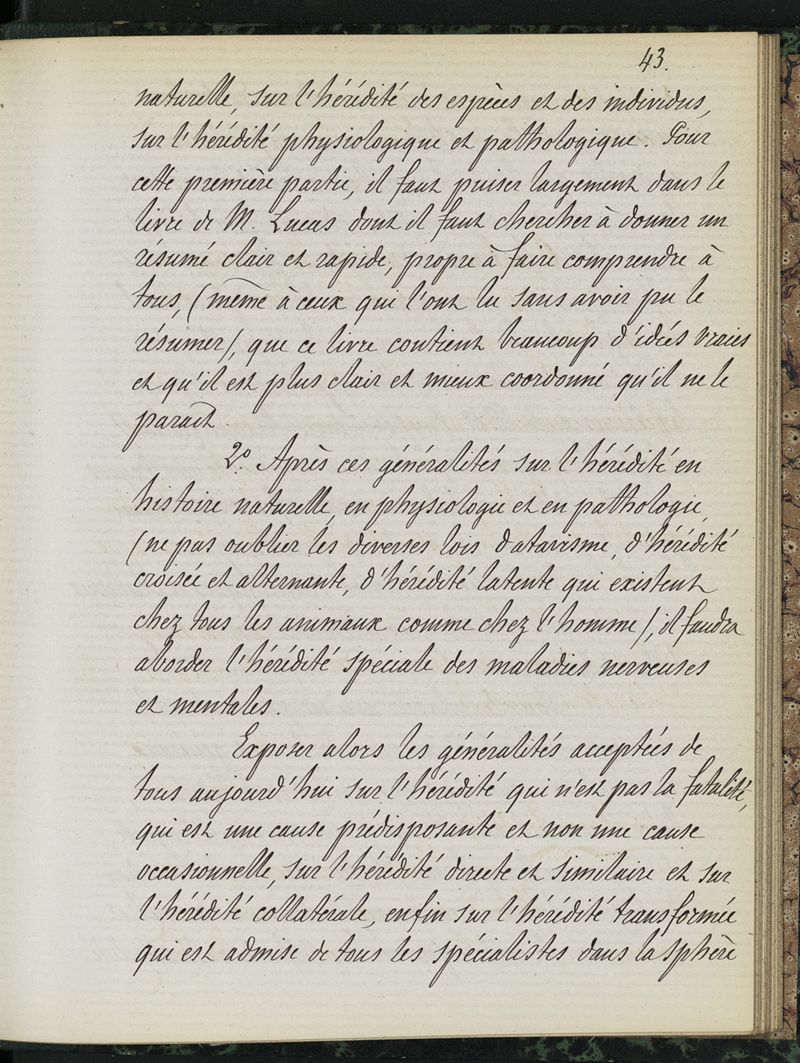 43.
naturelle, sur l'hérédité des espèces et des individus,
sur l'hérédité physiologique et pathologique. Pour
cette première partie, il faut puiser largement dans le
livre de M. Lucas dont il faut chercher à donner un
résumé clair et rapide, propre à faire comprendre à
tous, (même à ceux qui l'ont lu sans avoir pu le
résumer), que ce livre contient beaucoup d'idées vraies
et qu'il est plus clair et mieux coordonné qu'il ne le
paraît.
2º. Après ces généralités sur l'hérédité en
histoire naturelle, en physiologie et en pathologie,
(ne pas oublier les diverses lois d'atavisme, d'hérédité
croisée et alternante, d'hérédité latente qui existent
chez tous les animaux comme chez l'homme), il faudra
aborder l'hérédité spéciale des maladies nerveuses
et mentales.
Exposer alors les généralités acceptées de
tous aujourd'hui sur l'hérédité qui n'est pas la fatalité,
qui est une cause prédisposante et non une cause
occasionnelle, sur l'hérédité directe et similaire et sur
l'hérédité collatérale, enfin sur l'hérédité transformée
qui est admise de tous les spécialistes dans la sphère